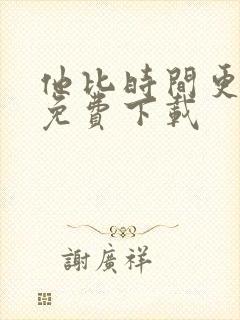 他比時間更
免費下載
謝廣祥